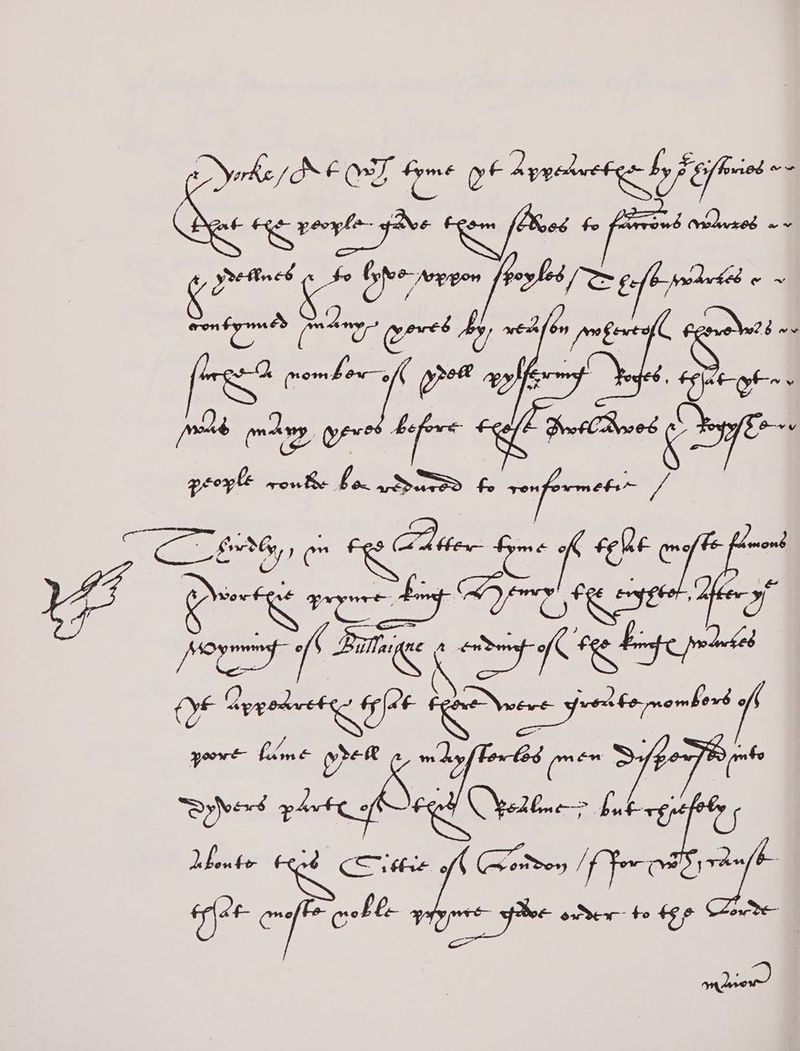 & Yorke / At wch tyme yt appeareth by ye histories
that the people gave them selves to farrons warres
& ydellnes & to lyve uppon spoyles / Thest warres
contynued many yeres by reason whereoff there was
suche a nomber off ydell pylfering Roges, that yt
was many yeres before thest Owtlawes & Rogysshe
people coulde be reduced to conformetie /
Thirdly, in the latter tyme off that moste famous
& worthie prynce king Henry the eyghte, After ye
wynning off Bullaigne & ending off the kinge warres
yt appeareth that there were greate nombers off
poore lame ydell & maysterles men Dispersed into
Dyvers parte off this Realme; but chiefely
aboute this Cittie off London / For wch cause
that moste noble prynce gave order to the Lorde
maior